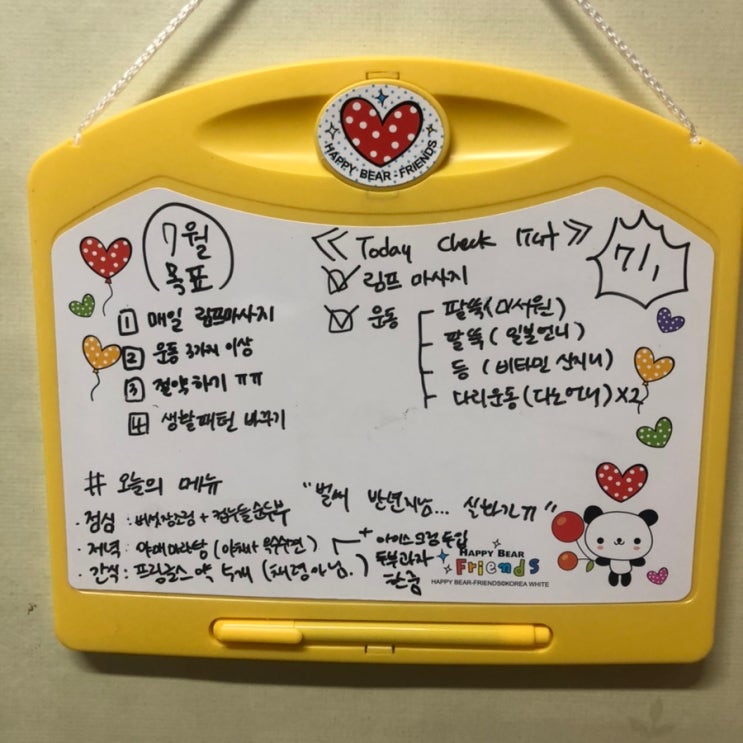 HAPPY BEAR-FRIENDS
7월
목표
1 매일 림프마사지
2 운동 3가지 이상
3 절약하기 ㅠㅠ
4 생활패턴 바꾸기
《 Today Check list 》
7/1
림프 마사지
운동
팔뚝(미서원)
팔뚝( 일본언니)
등 ( 비타민 신지니)
다리운동(다노언니)X2
# 오늘의 메뉴
"벌써 반년지남... 실화가ㅠ"
· 점심 : 버섯장조림 + 컵누들순두부
· 저녁 : 야매마라탕 (야채+옥수수면)
· 간식 : 프링글스 약 5개 (채경아님.)
+ 아이스크림
두부과자
한줌
HAPPY BEAR
Friends
HAPPY BEAR-FRIENDS©KOREA WHITE